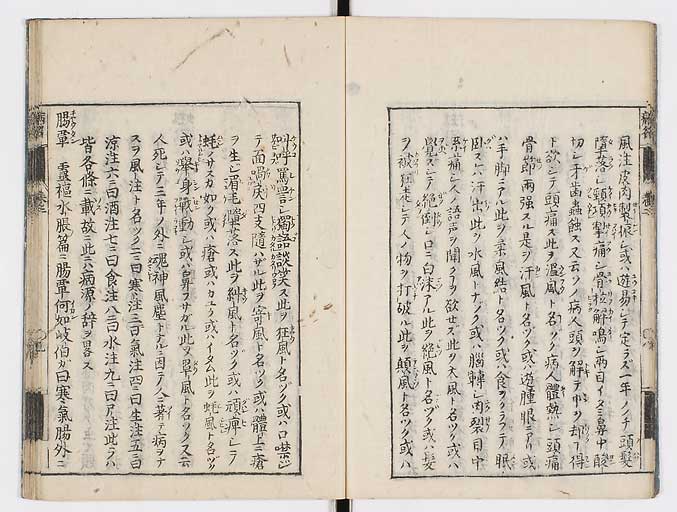 風注皮肉掣振シ或ハ遊易シテ定ラズ一年ノノチ頭髮
墮落シ頸項掣痛シ骨拉解鳴シ兩目イタミ鼻中酸
切シ牙齒蟲蝕ス又云ソノ病人頭ヲ解テ巾ヲ却
ト欲シテ頭痛ス此ヲ溫風ト名ツク病人體熱シ頭痛
骨節兩強スル是ヲ汗風ト名ツク或ハ遊腫
ハ手脚ニアル此ヲ柔風結ト名ツク或ハ食ヲクラフテ眠
臥スレハ汗出此ヲ水風トナヅク或ハ腦轉シ肉裂目中
痛シ人ノ語声ヲ聞クヲ欲セズ此ヲ大風ト名ツク或ハ
覺スシテ絕倒シ口ニ白沫アル此ヲ絕風ト名ヅク或ハ髮
ヲ被狂走シテ人ノ物ヲ打破ル此ヲ顛風ト名ヅク或ハ
叫呼罵詈シ獨語談笑ス此ヲ狂風ト名ツク或ハ口噤シ
テ面喎戾四支隨ハサル此ヲ寄風ト名ツク或ハ體上ニ瘡
ヲ生シ眉毛墮落ス此ヲ糾風ト名ヅク或ハ頑痺シテ
蚝ノサスカ如ク或ハ瘡或ハカユク或ハイタム此ヲ蚝風ト名ヅク
或ハ舉身戰動シ或ハ鼻フサガル此ヲ單風ト名ツク又云
人死シテ三年ノ外ニ魂神風塵トナル因テ人ニ著テ病ヲナ
スヲ風注ト名ツク二曰寒注三曰氣注四曰生注五曰
涼注六曰酒注七曰食注八曰水注九曰尸注此ラハ
皆各條ニ載故ニ此ニハ病源ノ辞ヲ畧ス
腸覃 靈樞水脹篇ニ腸覃何如岐伯ガ曰寒氣腸外ニ